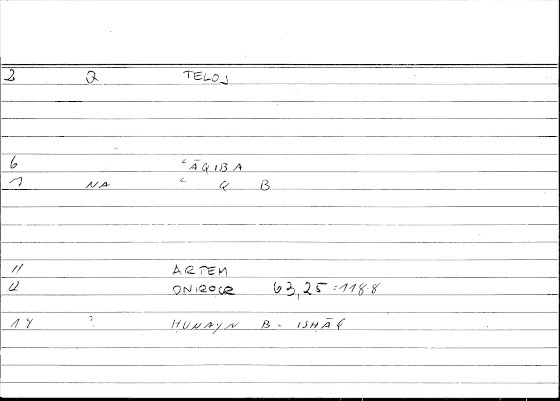 2 Q TELOS
6 ʿĀQIBA
7 NA ʿ Q B
11 ARTEM
12 ONIROCR 63,25 :118.8
14 ? HUNAYN B. ISHĀQ